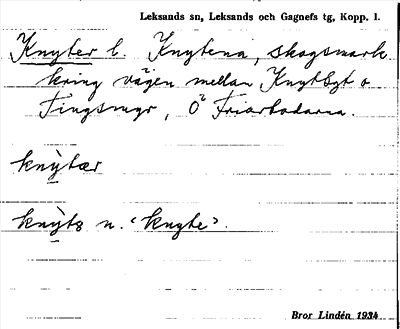 Leksands sn, Leksands och Gagnefs tg, Kopp. l.
Knyter l. Knytena, skogsmark
kring vägen mellan Knytbyt o
Tingsmyr, Ö Friarbodarna.
knỳtær
knỳts n. ‹knyte›.
Bror Lindén 1934